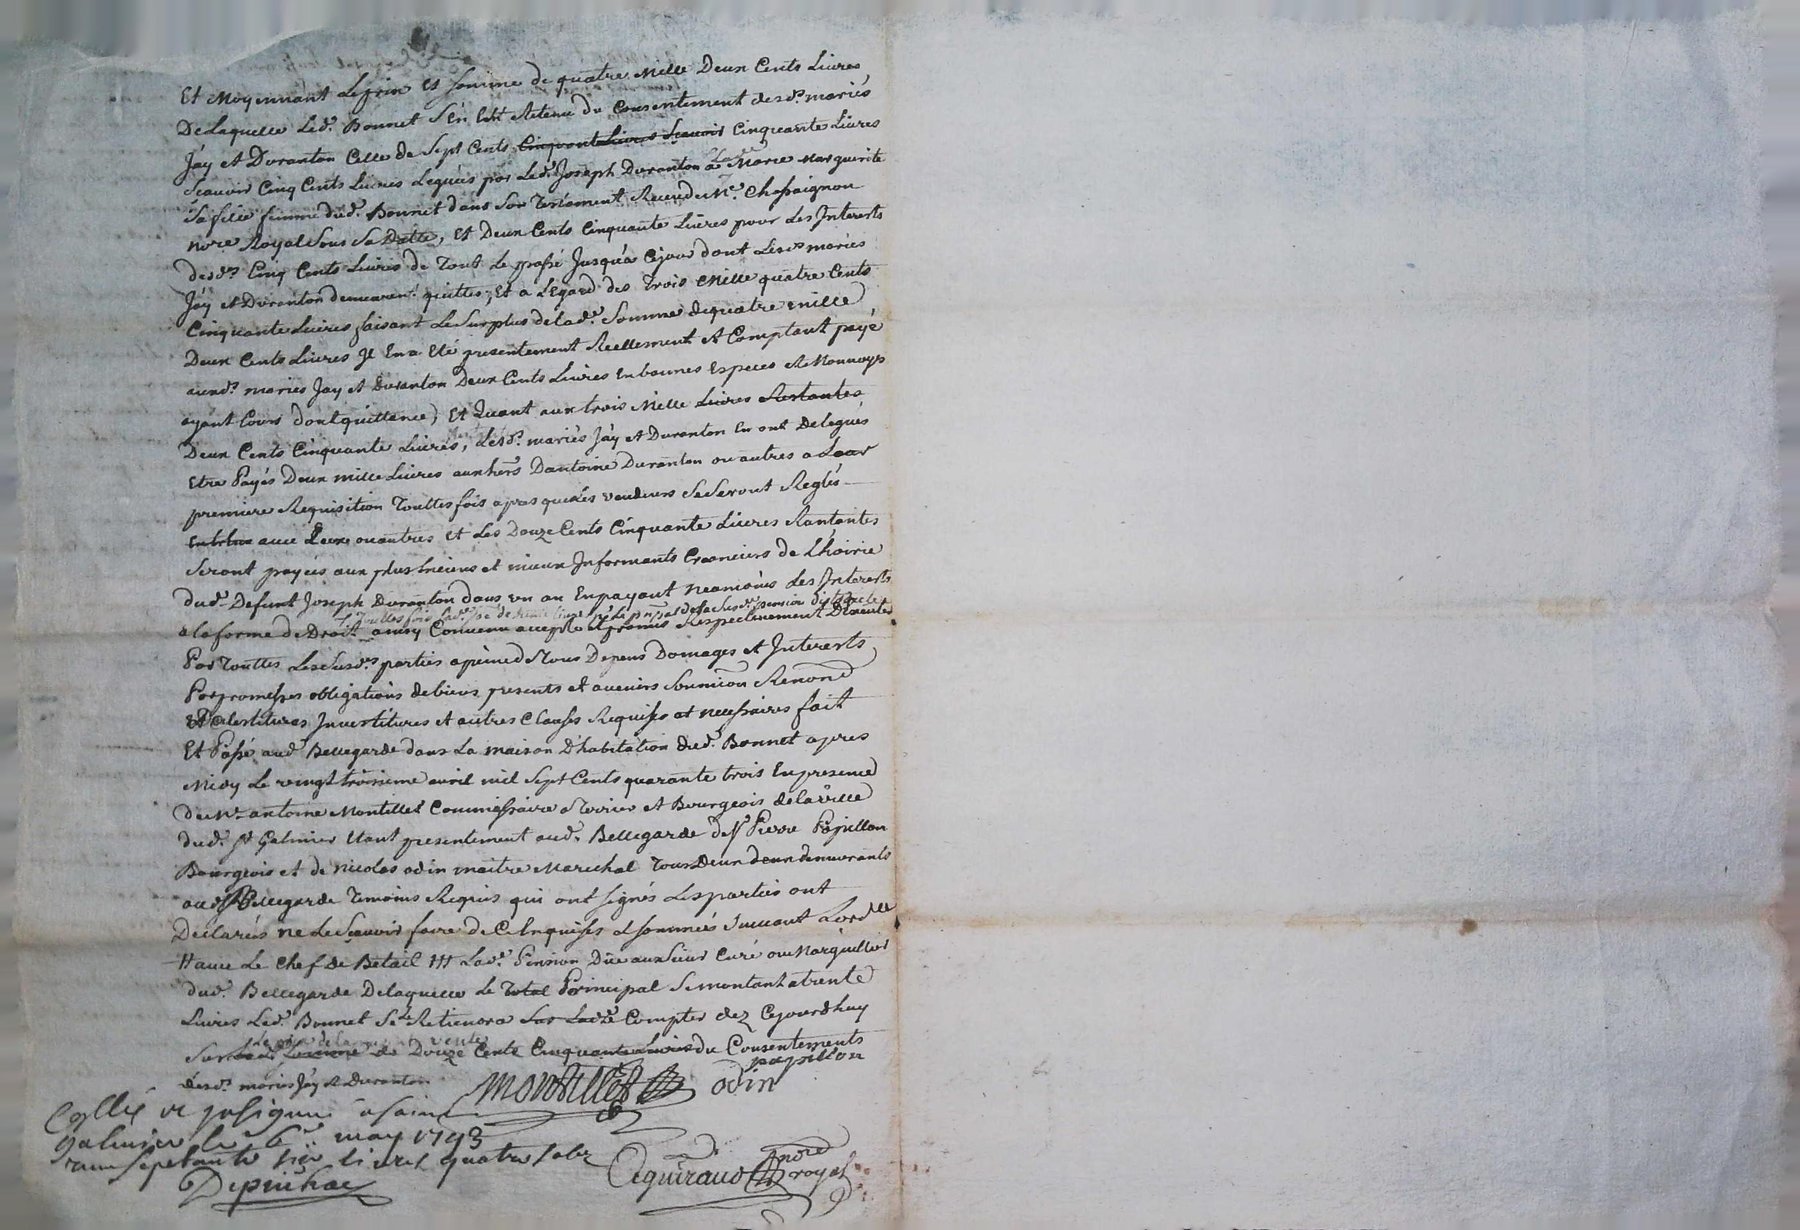 Et Moyennant Le prix Et somme de quatre Mille Deux Cents Livres
De Laquelle Led. Bonnet S'en Est Retenu du Consentement desd. mariés
Jay et Duranton Celle de Sept Cents Cinquante Livres Scavoir Cinquante Livres
Scavoir Cinq Cents Livres Leguées par Led. Joseph Duranton a Lad. Marie Marguerite
Sa fille femme dud. Bonnet dans Son Testament Receu de Me. Chassaignon
nore Royal Sous Sa Datte, Et Deux Cents Cinquante Livres pour Les Interests
desd. Cinq Cents Livres de Tout Le passé Jusqu'a Cejour dont Lesd. mariés
Jay et Duranton demeurent quittes; Et a L'Egard des Trois Mille quatre Cents
Cinquante Livres faisant Le Surplus delad. Somme de quatre mille
Deux Cents Livres Il En a Eté presentement Reellement et Comptant payé
auxd. mariés Jay et Duranton Deux Cents Livres En bonnes Especes et Monnoye
ayant Cours dont quittance, Et Quant aux trois Mille Livres Restantes
Deux Cents Cinquante Livres, Lesd. mariés Jay et Duranton En ont Delegués
Etre Payés Deux mille Livres aux hers D'antoine Duranton ou autres a Leur
premiere Requisition Touttes fois apres que Les vendeurs Se Seront Reglés
avec Eux ou autres Et Les Douze Cents Cinquante Livres Restantes
Seront payées aux plus anciens et mieux Informants Creanciers de L'hoirie
dud. Defunt Joseph Duranton dans un an En payant neamoins Les Interests
a la forme de Droit ainsy Convenu accepté et promis Respectivement D'Executer
Par Touttes Lessusd. parties a peine de Tous Depens Domages et Interests
Par promesses obligations de biens presents et avenirs Soumiōn Renonc̄
Investitures et autres Clauses Requises et necessaires fait
Et Passé aud. Bellegarde dans La maison D'habitation dud. Bonnet apres
Midy Le vingt troisieme avril mil Sept Cents quarante trois En presence
de Me. antoine Montillet Commissaire a Terrier et Bourgeois de la ville
dud. St. Galmier Etant presentement aud. Bellegarde de Sr. Pierre Papillon
Bourgeois et de Nicolas odin maitre Marechal Tous Deux demeurants
aud. Bellegarde Temoins Requis qui ont signés Les parties ont
Declarés ne Le Scavoir faire de Ce Enquises et sommées Suivant L'ordce
# avec Le Chef de Betail ### Lad. Pension Düe aux Sieur Curé ou Marguillier
dud. Bellegarde De laquelle Le Total Principal Se montant a trente
Livres Led. Bonnet Se Retiendra Sur Lad. Compter dez Cejourdhuy
Sur Somme de Douze Cents Cinquante Livres du Consentements
desd. mariés Jay et Duranton
papillon
Montillet odin
galmier le 6e may 1743
septante six livres quatre sols
Depuihac
Ceguiraud nore royal